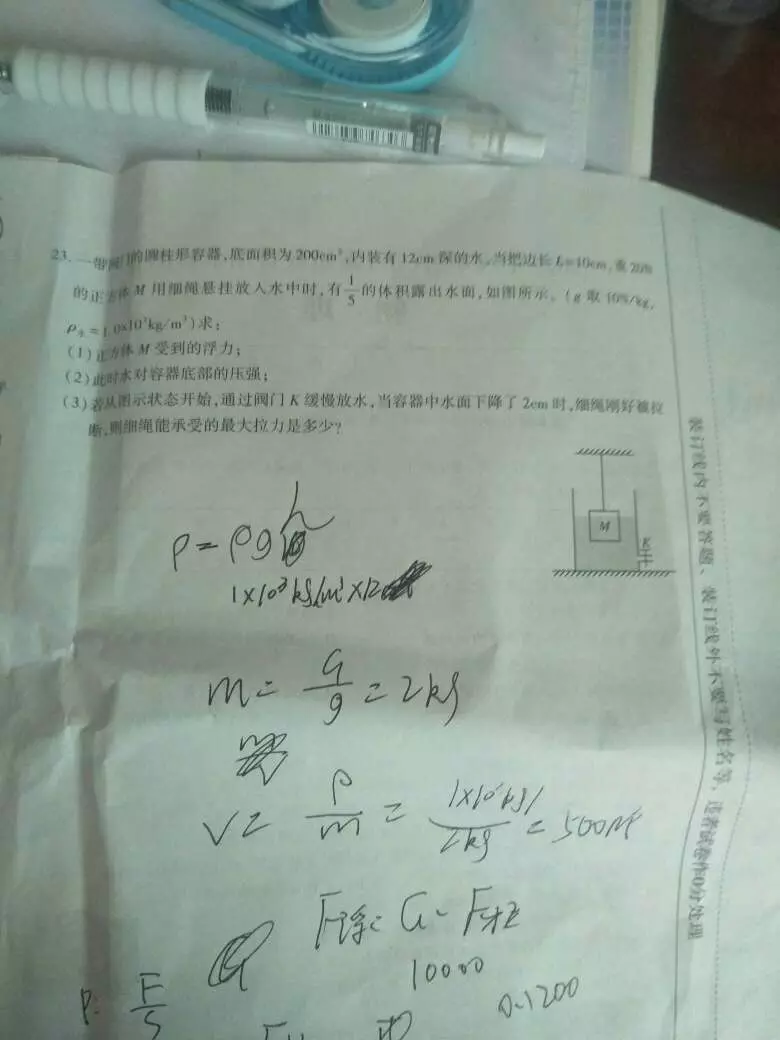 23. 一带阀门的圆柱形容器,底面积为200cm²,内装有12cm深的水,当把边长L=10cm,重20N
的正方体M用细绳悬挂放入水中时,有1/5的体积露出水面,如图所示。(g取10N/kg,
ρ水=1.0x10³kg/m³)求:
(1)正方体M受到的浮力;
(2)此时水对容器底部的压强;
(3)若从图示状态开始,通过阀门K缓慢放水,当容器中水面下降了2cm时,细绳刚好被拉
断,则细绳能承受的最大拉力是多少?
M
K
P=ρgh
1×10³kg/m³×12
m=G/g=2kg
V=ρ/m=1×10 kg/2kg=500
F浮=G-F拉
10000
0.1200
P= F/S
装订线内不要答题、装订线外不要写姓名等,违者试卷作0分处理